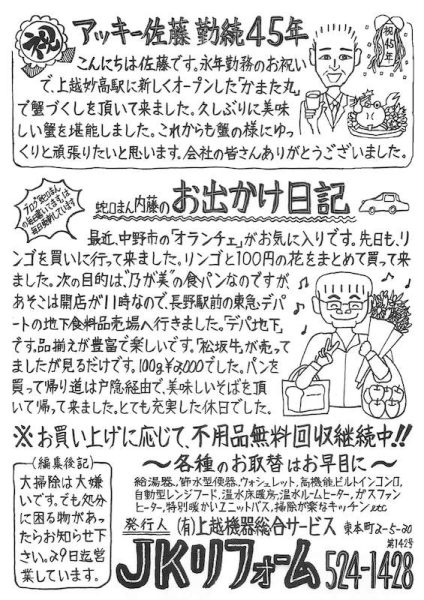 祝
アッキー佐藤 勤続45年
祝45年
こんにちは佐藤です。永年勤務のお祝い
で、上越妙高駅に新しくオープンした「かまた丸」
で蟹づくしを頂いて来ました。久しぶりに美味
しい蟹を堪能しました。これからも蟹の様にゆ
っくりと頑張りたいと思います。会社の皆さんありがとうございました。
蛇口まん内藤のお出かけ日記
最近、中野市の「オランチェ」がお気に入りです。先日も、リ
ンゴを買いに行って来ました。リンゴと100円の花をまとめて買って来
ました。次の目的は、“乃が美”の食パンなのですが、
あそこは開店が11時なので、長野駅前の東急デパ
ートの地下食料品売場へ行きました。「デパ地下」
です。品揃えが豊富で楽しいです。「松坂牛」が売って
ましたが見るだけです。100g¥3,000でした。パンを
買って帰り道は戸隠経由で、美味しいそばを頂
いて帰って来ました。とても充実した休日でした。
※お買い上げに応じて、不用品無料回収継続中!!
(編集後記)
大掃除は大嫌
いです。でも処分
に困る物があっ
たらお知らせ下
さい。29日迄営
業しています。
〜各種のお取替はお早目に〜
給湯器、節水型便器、ウォシュレット、高機能ビルトインコンロ、
自動型レンジフード、温水床暖房、温水ルームヒーター、ガスファン
ヒーター、特別暖かいユニットバス、掃除が楽なキッチンetc
発行人 (有)上越機器総合サービス 東本町2-5-20
第142号
JKリフォーム 524-1428